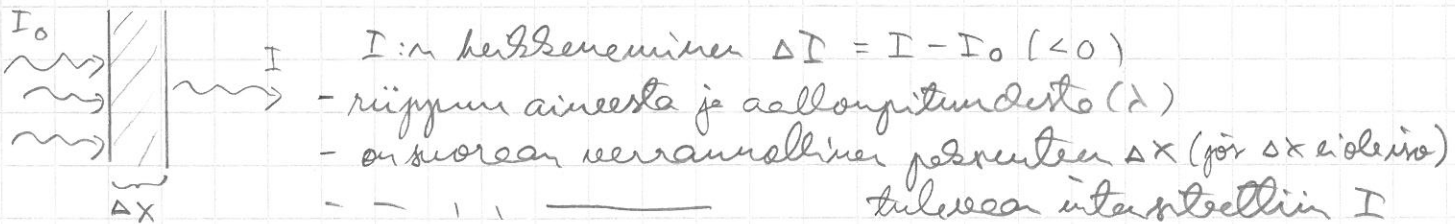 I₀
I
I:n heikkeneminen ΔI = I - I₀ (<0)
- riippuu aineesta ja aallonpituudesta (λ)
- on suoraan verrannollinen paksuuteen Δx (jos Δx ei ole iso)
- - ,, ——— tulevaan intensiteettiin I
Δx